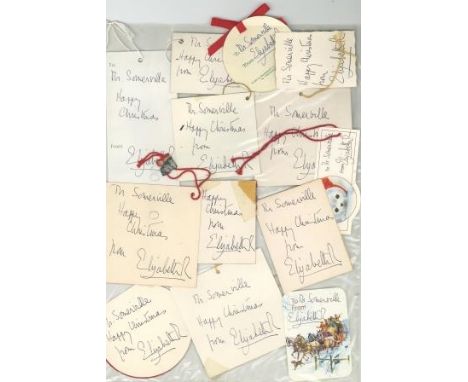 To
Mr Somerville
Happy
Christmas
From
Elizabeth R
Mr Somerville
Happy Christmas
from
Elizabeth R
Mr Somerville
From
Elizabeth R
Mr Somerville
Happy Christmas
from
Elizabeth R
Mr Somerville
Happy Christmas
from
Elizabeth R
Mr Somerville
Happy Christmas
from
Elizabeth R
Mr Somerville
Elizabeth R
Mr Somerville
Happy
Christmas
from
Elizabeth R
Mr Somerville
Happy
Christmas
from
Elizabeth R
Mr Somerville
Happy Christmas
from
Elizabeth R
Mr Somerville
Happy
Christmas
from
Elizabeth R
Mr Somerville
Happy
Christmas
from
Elizabeth R
To Mr Somerville
From
Elizabeth R